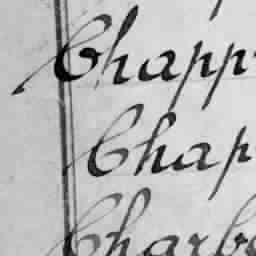 Chapp
Chap
Charb